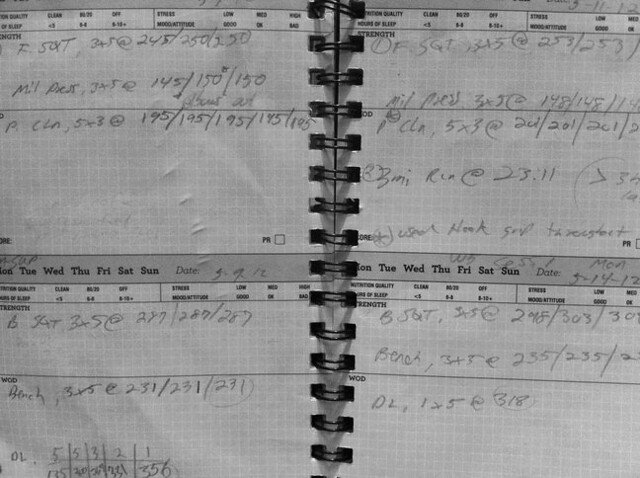 NUTRITION QUALITY CLEAN 80/20 OFF STRESS LOW MED HIGH
HOURS OF SLEEP <5 5-8 8-10+ MOOD/ATTITUDE GOOD OK BAD
STRENGTH
F. SQT, 3x5 @ 245/250/250
Mil Press, 3x5 @ 145/150/150
P. Cln, 5x3 @ 195/195/195/195/195
SCORE: PR
Mon Tue Wed Thu Fri Sat Sun Date: 5-9-12
NUTRITION QUALITY CLEAN 80/20 OFF STRESS LOW MED HIGH
HOURS OF SLEEP <5 5-8 8-10+ MOOD/ATTITUDE GOOD OK BAD
STRENGTH
B SQT 3x5 @ 287/287/287
WOD
Bench, 3x5 @ 231/231/231
DL, 5 5 3 2 1
356
NUTRITION QUALITY CLEAN 80/20 OFF STRESS LOW MED
HOURS OF SLEEP <5 5-8 8-10+ MOOD/ATTITUDE GOOD OK
STRENGTH
1 F SQT, 3x5 @ 253/253/
Mil Press, 3x5 @ 148/148/
P Cln, 5x3 @ 201/201/201/2
3mi Run @ 23:11
SCORE: used Hook grip throughout PR
Mon Tue Wed Thu Fri Sat Sun Date: Mon 5-14-12
NUTRITION QUALITY CLEAN 80/20 OFF STRESS LOW MED
HOURS OF SLEEP <5 5-8 8-10+ MOOD/ATTITUDE GOOD OK
STRENGTH
B SQT, 3x5 @ 298/303/30
Bench, 3x5 @ 235/235/2
WOD
DL, 1x5 @ 318